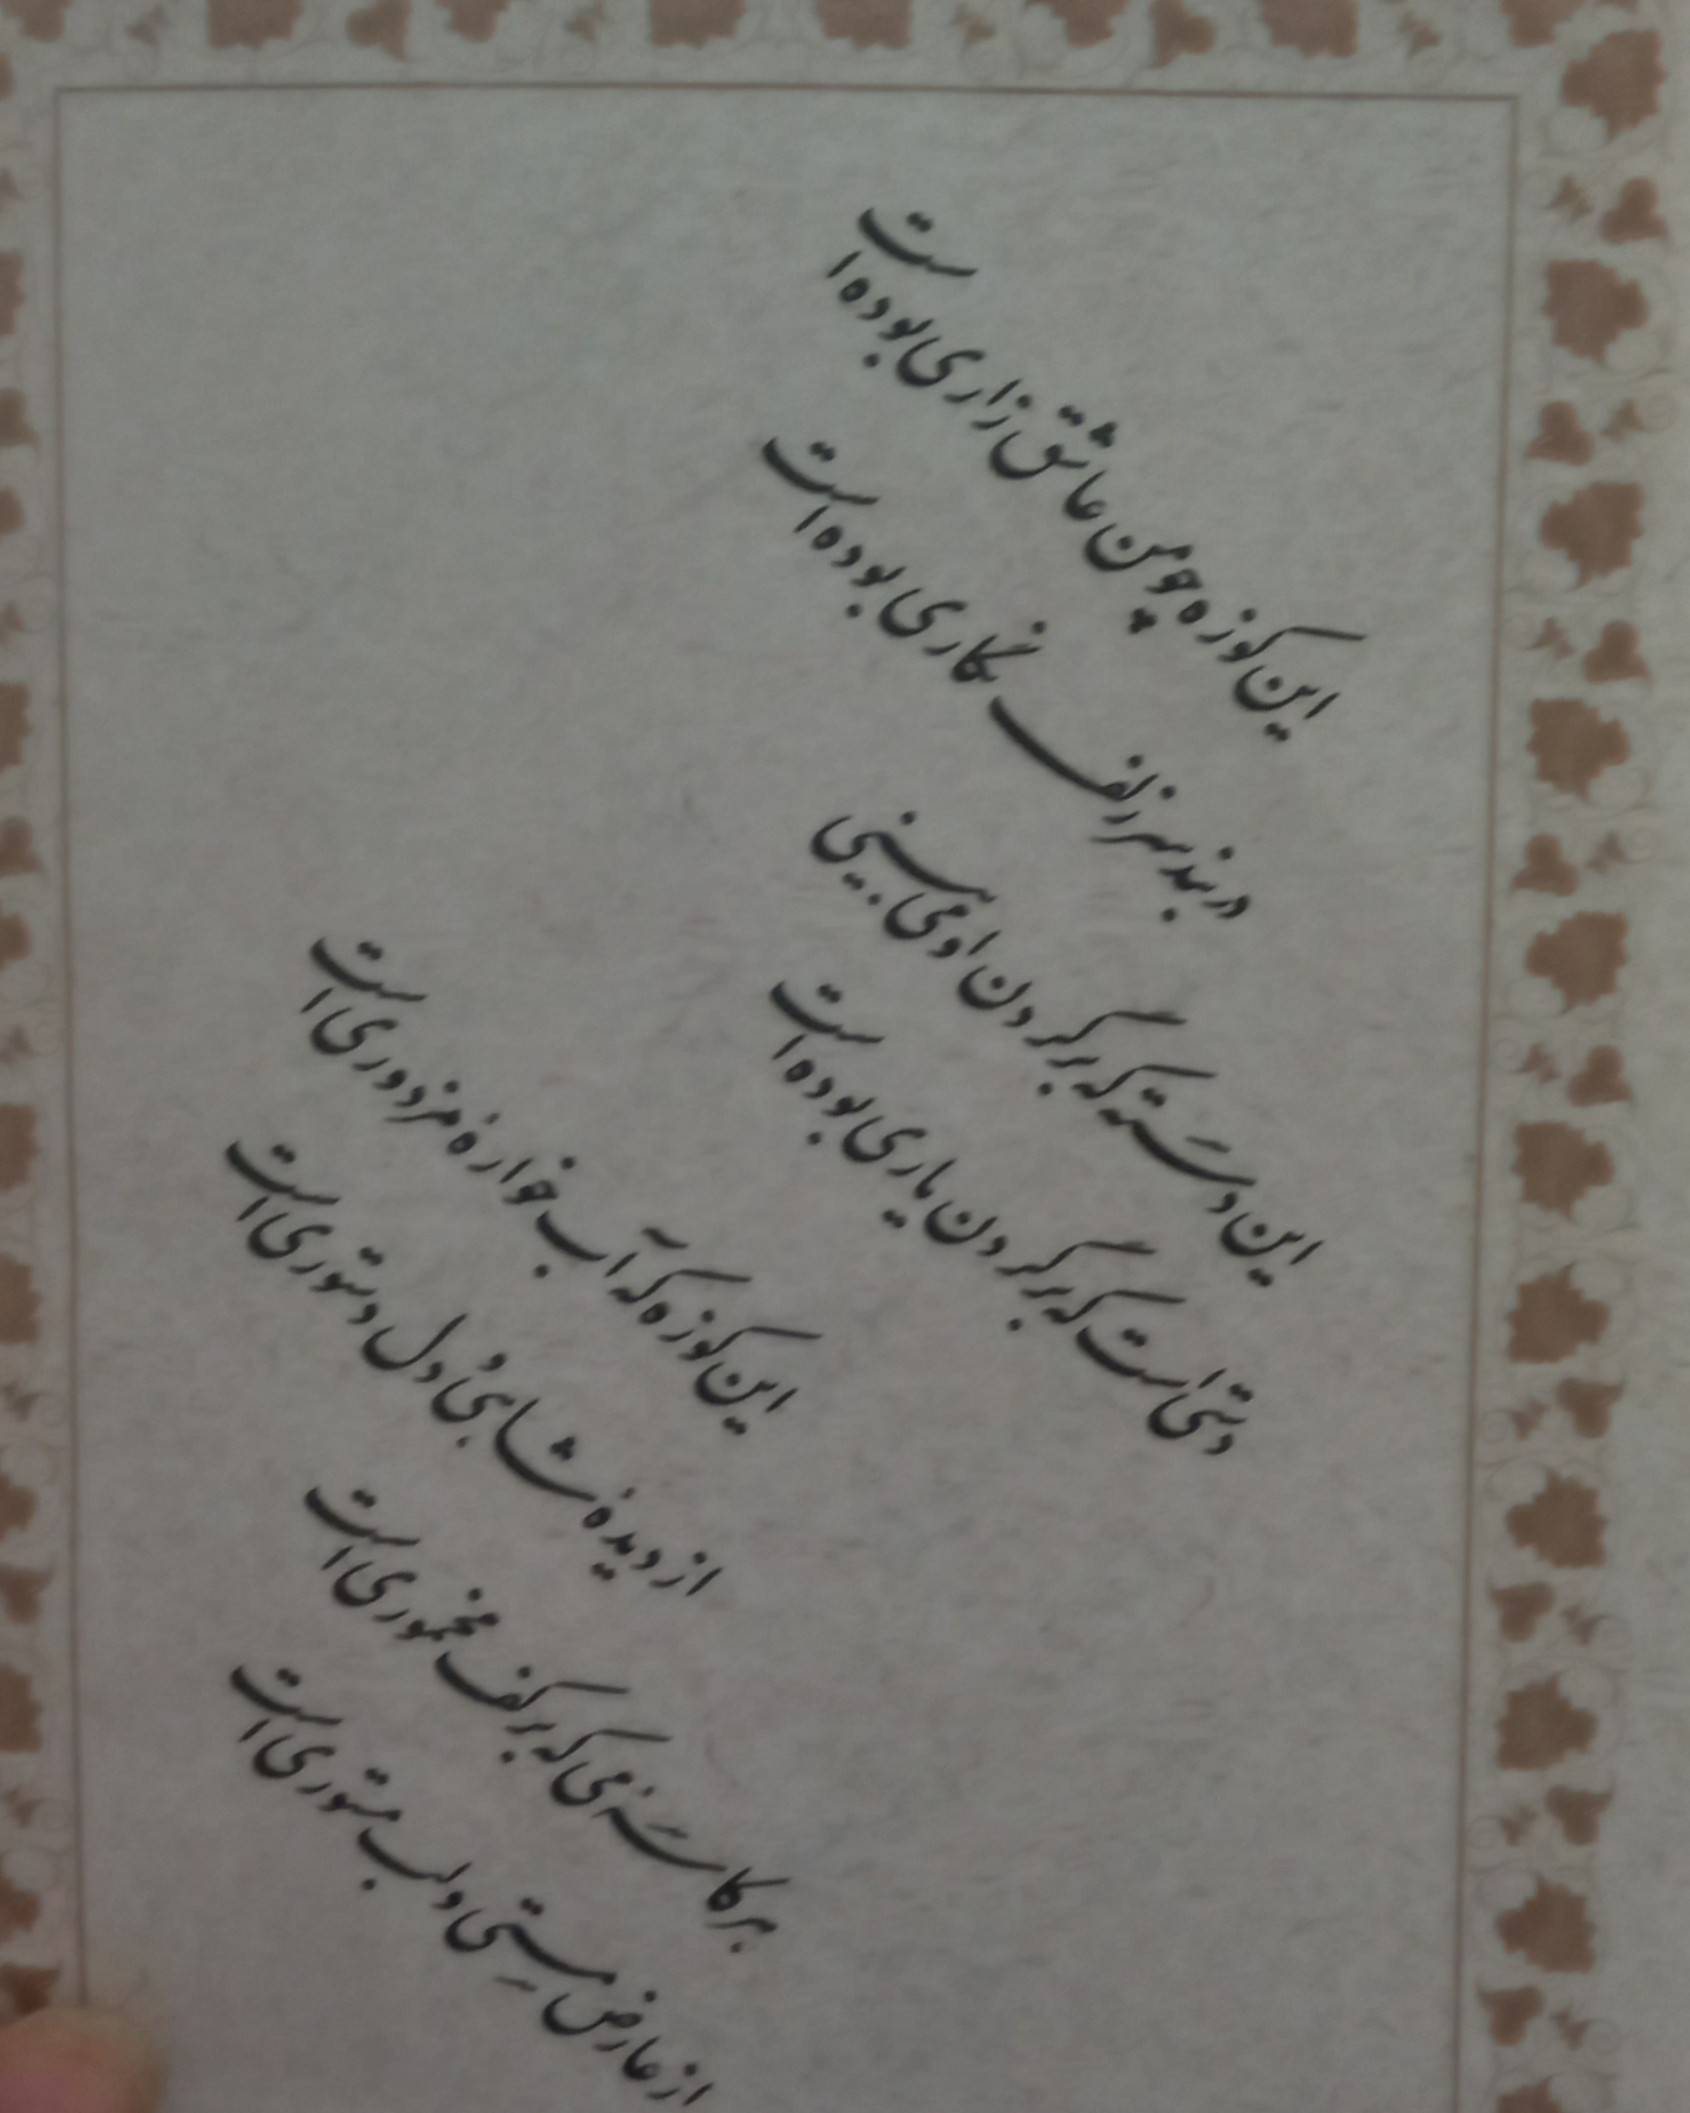 این کوزه چو من عاشق زاری بوده است
در بند سر زلف نگاری بوده است
این دسته که بر گردن او می بینی
دستی است که بر گردن یاری بوده است
این کوزه که آب خوارهٔ مزدوری است
از دیدهٔ شاهی و دل دستوری است
هر کاسهٔ می که بر کف مخموری است
از عارض مستی و لب مستوری است